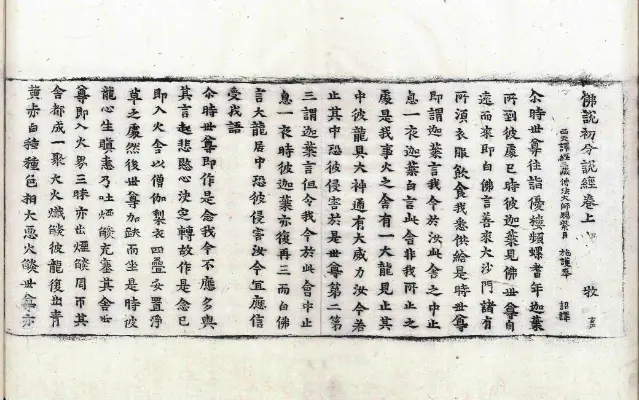 佛說初分說經卷上 牧
西天譯經三藏傳法大師賜紫臣 施護奉 詔譯
尒時世尊往詣優樓頻螺耆年迦葉
所到彼處已時彼迦葉見佛世尊自
遠而來即白佛言善來大沙門諸有
所須衣服飲食我悉供給是時世尊
即謂迦葉言我今於汝此舍之中止
息一夜迦葉白言此舍非我所止之
處是我事火之舍有一大龍見止其
中彼龍具大神通有大威力汝今若
止其中恐彼侵害於是世尊第二第
三謂迦葉言但令我今於此舍中止
息一夜時彼迦葉亦復再三而白佛
言大龍居中恐彼侵害汝今宜應信
受我語
尒時世尊即作是念我今不應多與
其言起悲愍心決定轉故作是念已
即入火舍以僧伽梨衣四疊安置淨
草之處然後世尊加趺而坐是時彼
龍心生瞋恚乃吐煙燄充塞其舍世
尊即入火界三昧亦出煙燄周帀其
舍都成一聚大火熾燄彼龍復出青
黃赤白種種色相大惡火燄世尊亦